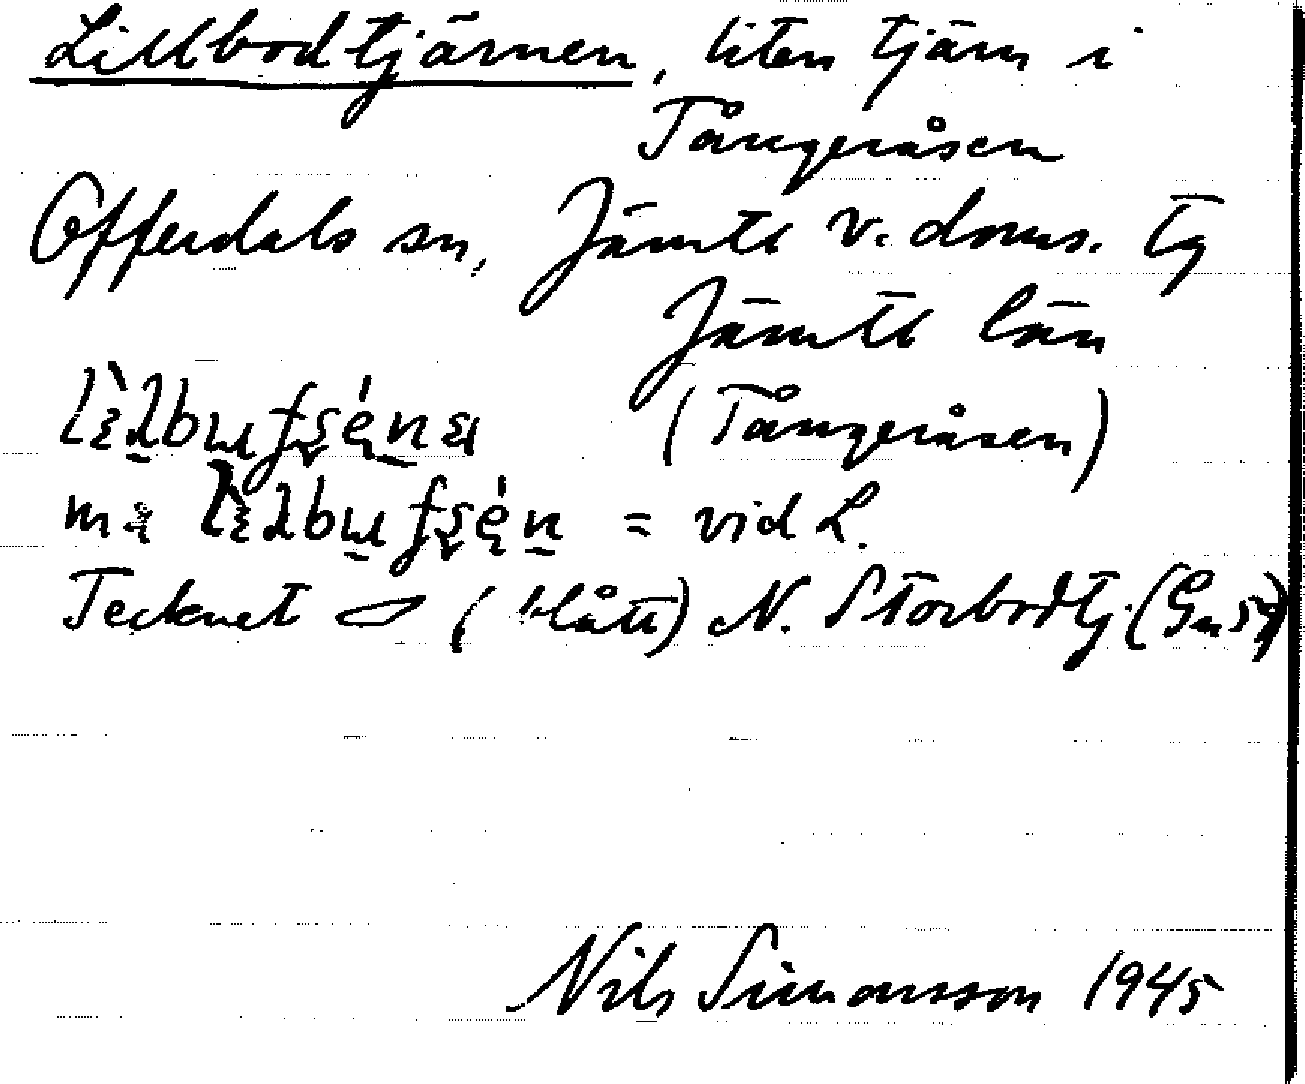 Lillbodtjärnen, liten tjärn i
Tångeråsen
Offerdals sn, Jämtl v. doms. tg
Jämtl län
(Tångeråsen)
= vid L.
Tecknet (blått) N. Storbodtj.
Nils Simonsson 1945